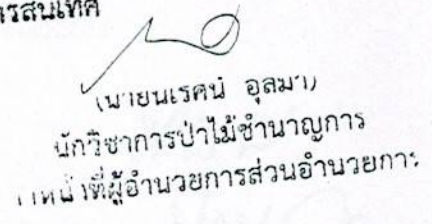 รสนเทศ
(นายนเรศน์ อุลมา)
นักวิชาการป่าไม้ชำนาญการ
ทำหน้าที่ผู้อำนวยการส่วนอำนวยการ